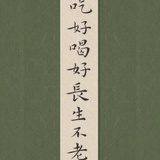 吃好喝好長生不老